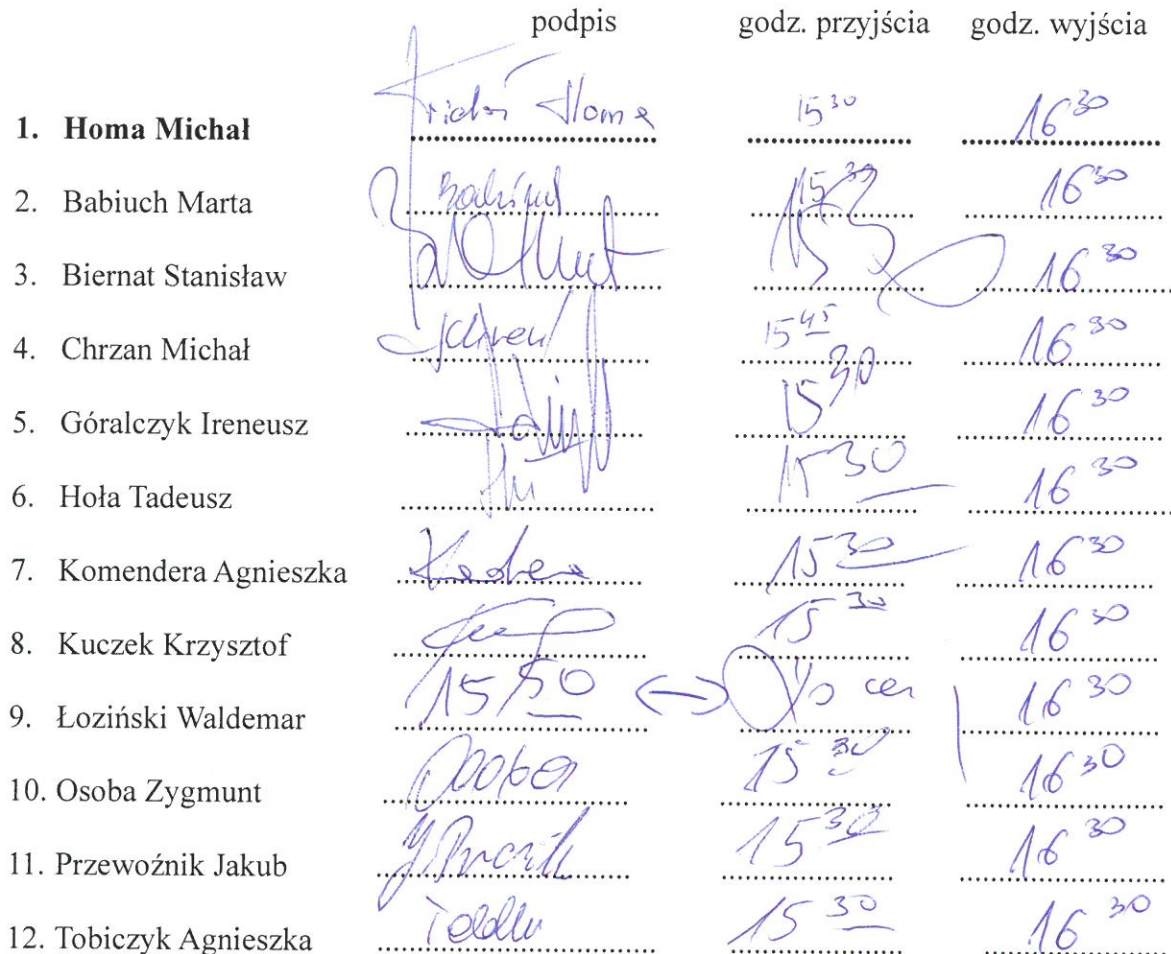 podpis godz. przyjścia godz. wyjścia
1. Homa Michał Homa 15 30 16 30
2. Babiuch Marta 15 30 16 30
3. Biernat Stanisław 15 3 16 30
4. Chrzan Michał 15 45 16 30
5. Góralczyk Ireneusz 15 30 16 30
6. Hoła Tadeusz 15 30 16 30
7. Komendera Agnieszka 15 30 16 30
8. Kuczek Krzysztof 15 30 16 30
9. Łoziński Waldemar 15 50 16 30
10. Osoba Zygmunt 15 30 16 30
11. Przewoźnik Jakub 15 30 16 30
12. Tobiczyk Agnieszka 15 30 16 30